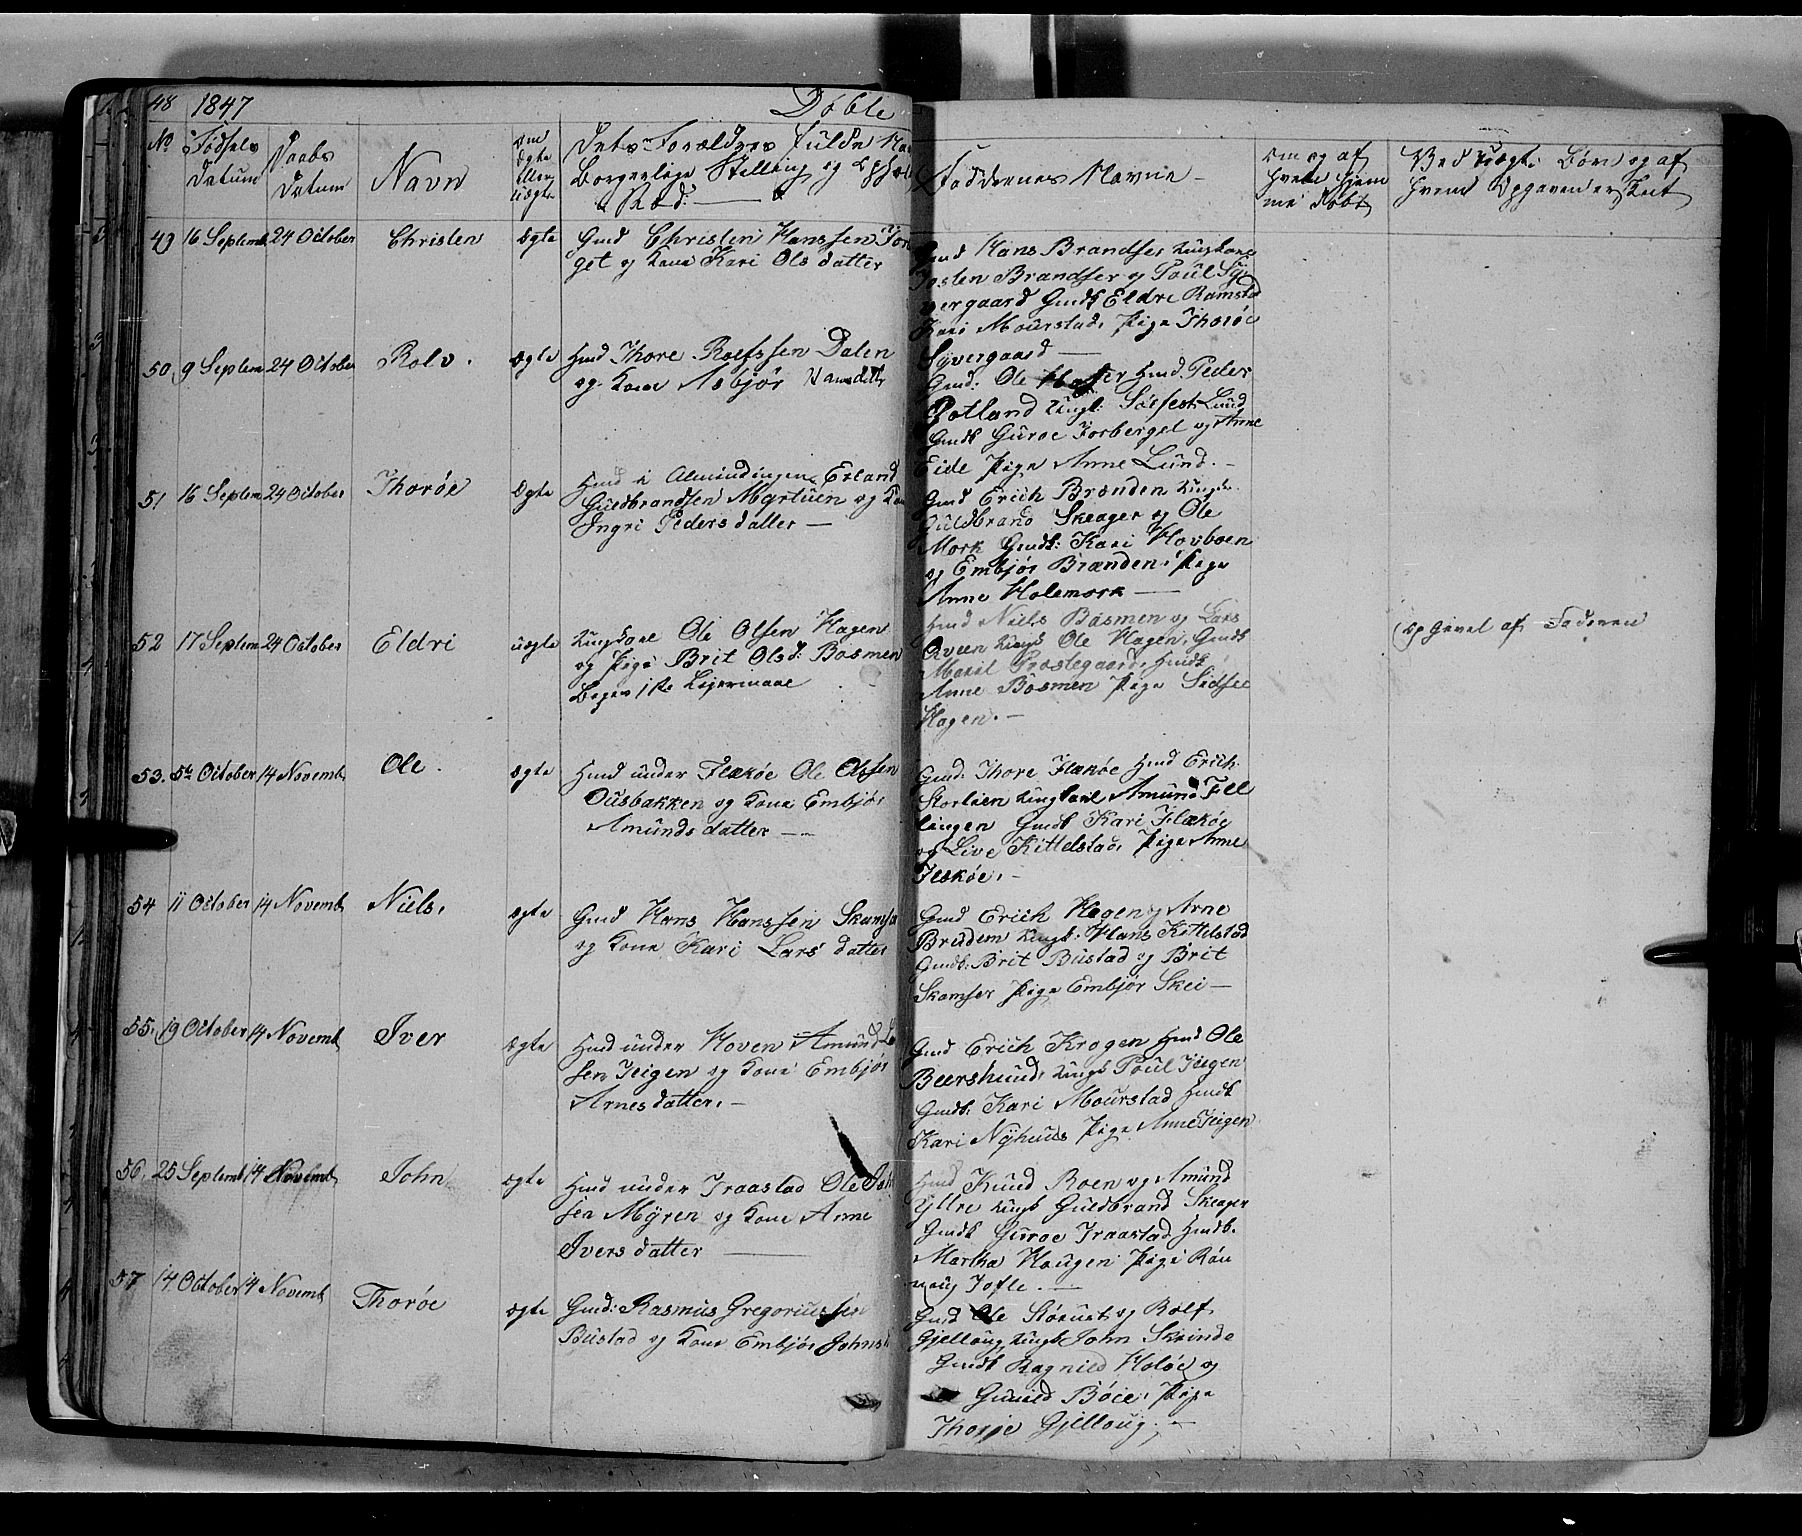 48 1847 Døbte
No
Fødsels Datum
Daabs Datum
Navn
Om Ægte eller Uægte
Dets Forældres fulde Na
Borgerlige Stilling og
Faddernes Navne
Om og af hvem hjemme døbt
Ved Uægte Børn og af
hvem Opgaven er skeet
49 16 Septemb 24 October Christen Ægte
Gmd Christen Hanssen For
get og Kone Kari Olsdatter
Gmd Hans Brandser Ungkarl
Josten Brandser og Poul Sy
vergaard Gmdk Eldri Ramstad
Kari Mourstad, Pige Thorøe
Syvergaard —
50 9 Septem 24 October Rolv. Ægte
Hmd Thore Rolfssen Dalen
og Kone Asbjør Hansdatt
Gmd: Ole Hmd: Peder
Rotland Ungk: Sørfest Lund
Gmdk Guroe Forberget og Anne
Eide Pige Anne Lund. –
51 16 Septem 24 October Thorøe Ægte
Hmd i Almindingen Erland
Guldbrandsen Myrtuen og Kone
Ingri Pedersdatter —
Gmd Erich Brænden Ungk
Guldbrand Skeager og Ole
Mork Gmdk: Kari Hovboen
og Embjør Brænden, Pige
Anne Holemork —
52 17 Septem 24 October Eldri uægte
Ungkarl Ole Olsen Hagen
og Pige Brit Olsd: Bøsmen
Beges 1ste Leiermaal
Hmd Niels Bøsmen og Lars
Qveen Ungk Ole Hagen, Gmdk
Marit Præstegaard, Hmdk
Anne Bøsmen Pige Sidsel
Hagen. –
Opgivet af Faderen
53. 5te October 14 Novemb Ole. Ægte
Hmd under Flækøe Ole Olssen
Ousbakken og Kone Embjør
Amundsdatter —
Gmd: Thore Flækøe Hmd Erich
Storlien Ungkarl Amund Tell
lingen Gmdk Kari Flækøe
og Live Kittelstad, Pige Anne
Flækøe. –
54 11 October 14 Novemb Niels, Ægte
Gmd Hans Hanssen Skamse
og Kone Kari Larsdatter
Gmd Erich Hagen og Arne
Brudem Ungk: Hans Kittelstad
Gmdk: Brit Bustad og Brit
Skamser Pige Embjør Skei —
55. 19 October 14 Novemb Iver Ægte
Hmd under Hoven Amund
sen Teigen og Kone Embjør
Arnesdatter. –
Gmd Erich Krogen Hmd Ole
Beershuud, Ungk Poul Teigen
Gmdk: Kari Mourstad Hmdk
Kari Nyhuus Pige Anne Teigen
56. 25 Septemb 14 Novemb John Ægte
Hmd under Traastad Ole Joh
sen Myren og Kone Anne
Iversdatter —
Hmd Knud Roen og Amund
Yttre Ungk Guldbrand Skeager
Gmdk Guroe Traastad Hmdk:
Martha Haugen Pige Røn
naug Tofte. –
57 14 October 14 Novemb Thorøe Ægte
Gmd: Rasmus Gregoriussen
Bustad og Kone Embjør Johnsd
Gmd Ole Størust og Rolf
Gjellaug, Ungk John Skrinde
Gmdk Ragnild Holøe og
Gunild Bøie, Pige
Thorøe Gjellaug. –